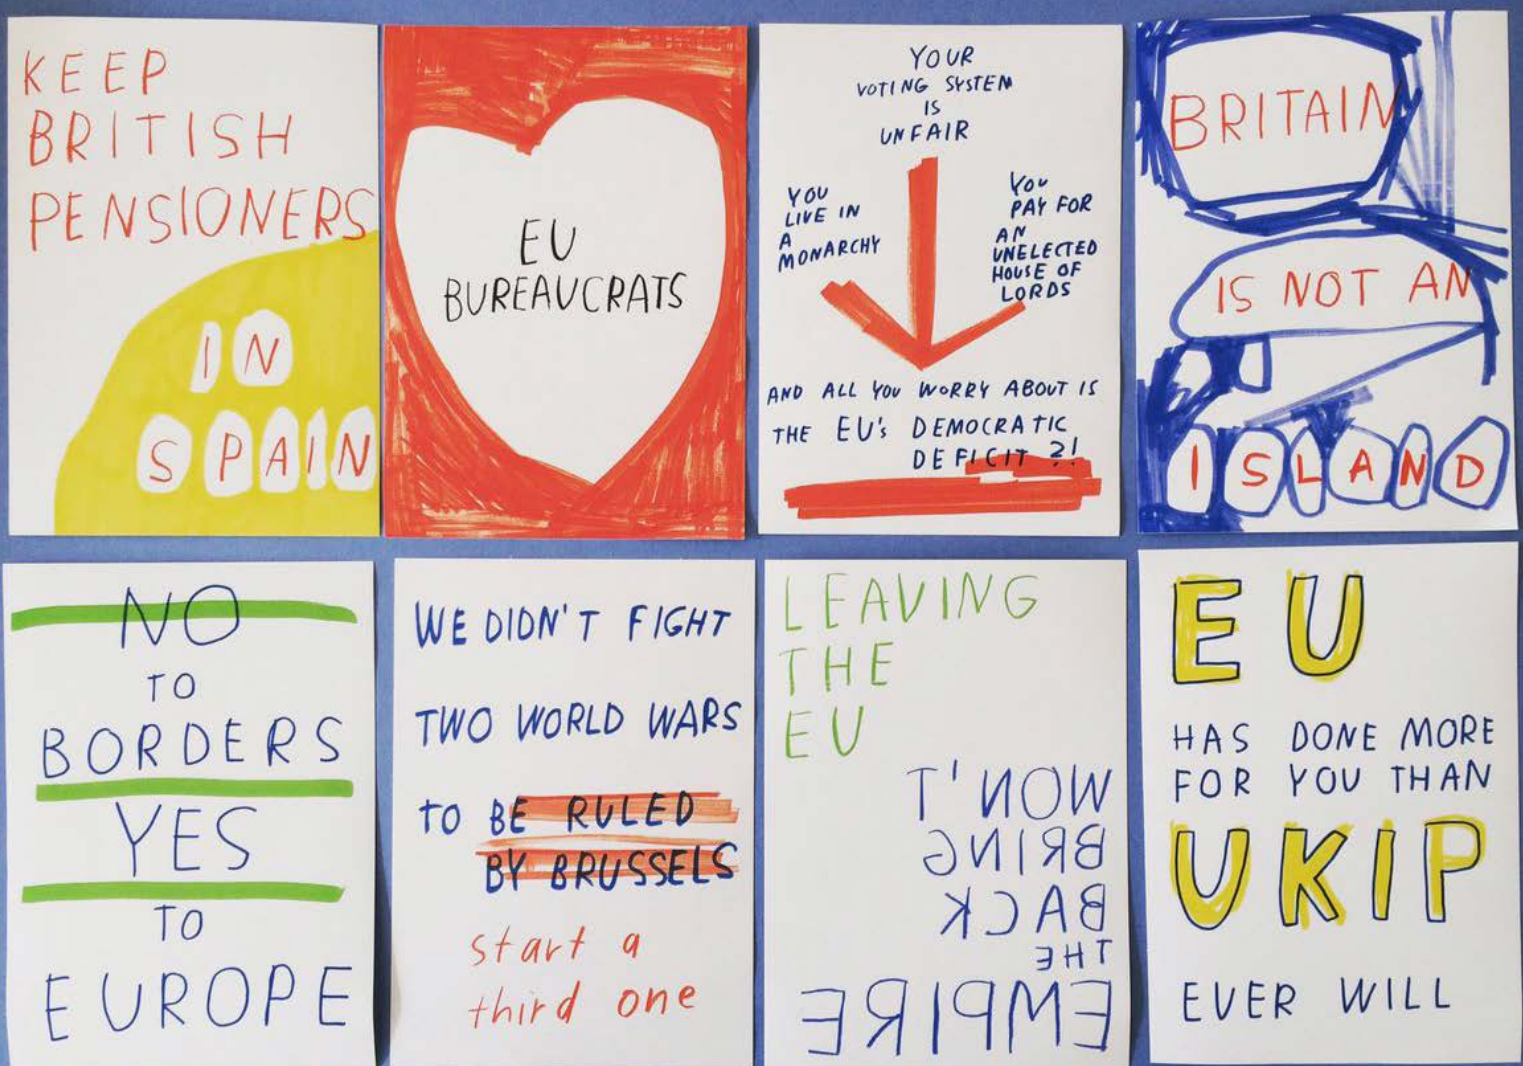 KEEP
BRITISH
PENSIONERS
IN
SPAIN
EU
BUREAUCRATS
YOUR
VOTING SYSTEM
IS
UNFAIR
YOU
LIVE IN
A
MONARCHY
YOU
PAY FOR
AN
UNELECTED
HOUSE OF
LORDS
AND ALL YOU WORRY ABOUT IS
THE EU'S DEMOCRATIC
DEFICIT ?!
BRITAIN
IS NOT AN
ISLAND
NO
TO
BORDERS
YES
TO
EUROPE
WE DIDN'T FIGHT
TWO WORLD WARS
TO BE RULED
BY BRUSSELS
start a
third one
LEAVING
THE
EU
WON'T
BRING
BACK
THE
EMPIRE
EU
HAS DONE MORE
FOR YOU THAN
UKIP
EVER WILL